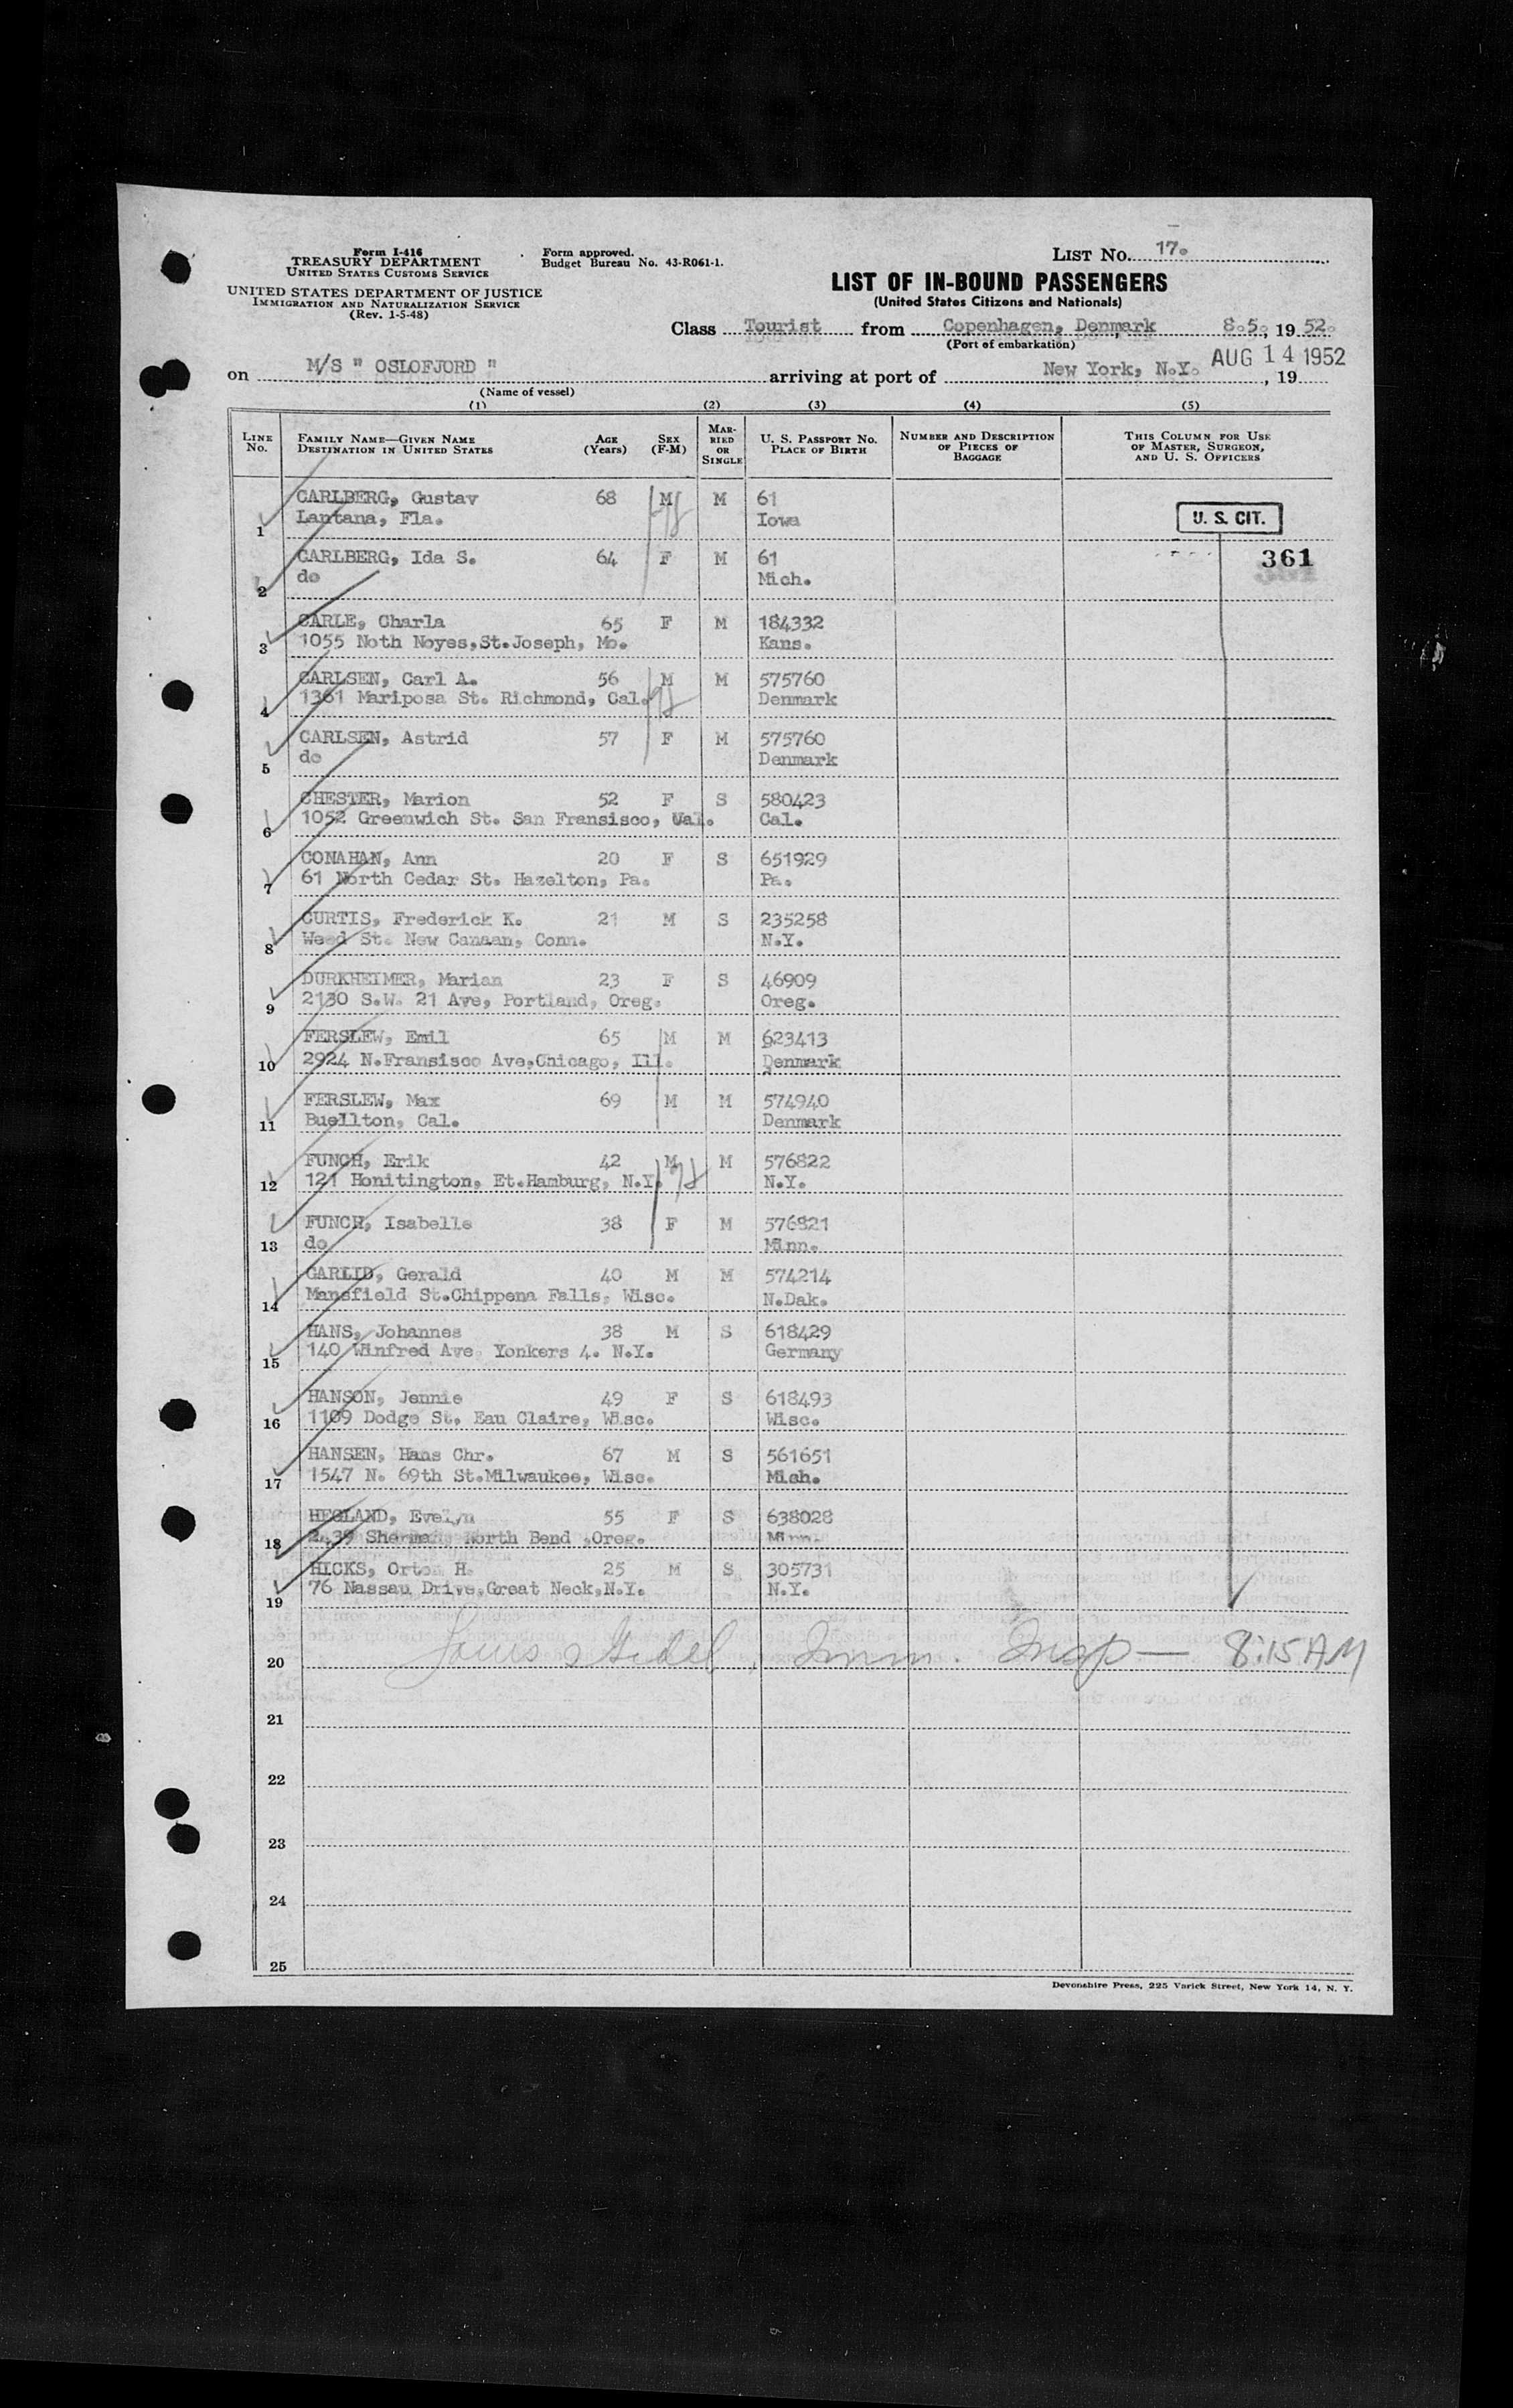 Form I-416
TREASURY DEPARTMENT
UNITED STATES CUSTOMS SERVICE
UNITED STATES DEPARTMENT OF JUSTICE
IMMIGRATION AND NATURALIZATION SERVICE
(Rev. 1-5-48)
Form approved.
Budget Bureau No. 43-R061-1.
LIST No. 17.
LIST OF IN-BOUND PASSENGERS
(United States Citizens and Nationals)
Class Tourist from Copenhagen, Denmark 8.5. 1952.
(Port of embarkation)
on M/S " OSLOFJORD " arriving at port of New York, N.Y. AUG 14 1952, 19
(Name of vessel)
(1) (2) (3) (4) (5)
LINE No. FAMILY NAME—GIVEN NAME DESTINATION IN UNITED STATES AGE (Years) SEX (F-M) MARRIED OR SINGLE U. S. PASSPORT No. PLACE OF BIRTH NUMBER AND DESCRIPTION OF PIECES OF BAGGAGE THIS COLUMN FOR USE OF MASTER, SURGEON, AND U. S. OFFICERS
CARLBERG, Gustav 68 M M 61
1 Lantana, Fla. Iowa U. S. CIT.
CARLBERG, Ida S. 64 F M 61 361
2 do Mich.
CARLE, Charla 65 F M 184332
3 1055 Noth Noyes,St.Joseph, Mo. Kans.
CARLSEN, Carl A. 56 M M 575760
4 1361 Mariposa St. Richmond, Cal. Denmark
CARLSEN, Astrid 57 F M 575760
5 do Denmark
CHESTER, Marion 52 F S 580423
6 1052 Greenwich St. San Fransisco, Cal. Cal.
CONAHAN, Ann 20 F S 651929
7 61 North Cedar St. Hazelton, Pa. Pa.
CURTIS, Frederick K. 21 M S 235258
8 Weed St. New Canaan, Conn. N.Y.
DURKHEIMER, Marian 23 F S 46909
9 2130 S.W. 21 Ave, Portland, Oreg. Oreg.
FERSLEW, Emil 65 M M 623413
10 2924 N.Fransisco Ave,Chicago, Ill. Denmark
FERSLEW, Max 69 M M 574940
11 Buellton, Cal. Denmark
FUNCH, Erik 42 M M 576822
12 121 Honitington, Et.Hamburg, N.Y. N.Y.
FUNCH, Isabelle 38 F M 576821
13 do Minn.
GARLID, Gerald 40 M M 574214
14 Mansfield St.Chippena Falls, Wisc. N.Dak.
HANS, Johannes 38 M S 618429
15 140 Winfred Ave Yonkers 4. N.Y. Germany
HANSON, Jennie 49 F S 618493
16 1109 Dodge St. Eau Claire, Wisc. Wisc.
HANSEN, Hans Chr. 67 M S 561651
17 1547 N. 69th St.Milwaukee, Wisc. Mich.
HEGLAND, Evelyn 55 F S 638028
18 2439 Sherman North Bend ,Oreg. Minn.
HICKS, Orton H. 25 M S 305731
19 76 Nassau Drive,Great Neck,N.Y. N.Y.
20 Louis Imm. Insp — 8:15 AM
21
22
23
24
25
Devonshire Press, 225 Varick Street, New York 14, N. Y.